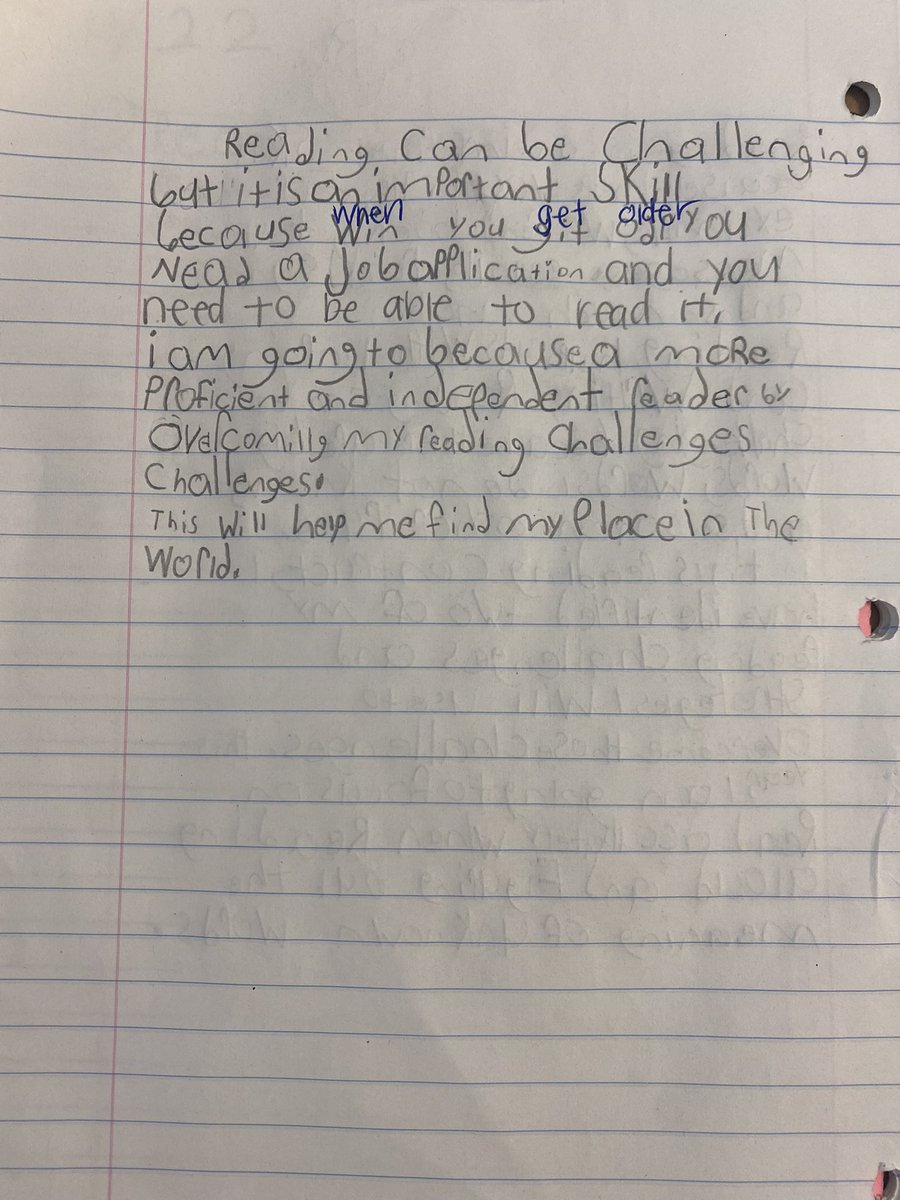 Reading Can be Challenging
but it is an important Skill
when get older
because Win you git you
Nead a Job application and you
need to be able to read it,
i am going to becausea a moRe
Proficient and independent reader by
Overcoming my reading Challenges
Challenges.
This will help me find my Place in The
World.